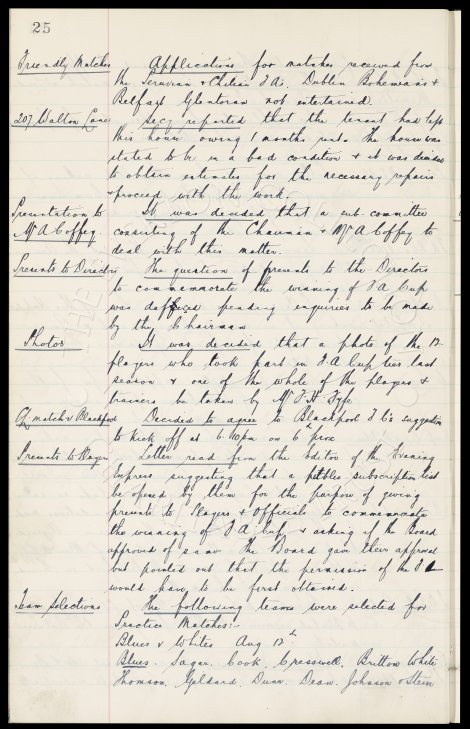 25
Friendly Matches Applications for matches received from
the Peruvian & Chelian F.As. Dublin Bohemians &
Belfast Glentoran not entertained.
207 Walton Lane Secy reported that the tenant had left
this house owing 1 months rent. The house was
stated to be in a bad condition & it was decided
to obtain estimates for the necessary repairs
& proceed with the work.
Presentation to It was decided that a sub-committee
Mr A Coffey. consisting of the Chairman & Mr A Coffey to
deal with this matter.
Presents to Directors The question of presents to the Directors
to commemorate the winning of F A Cup
was deffered pending enquiries to be made
by the Chairman
Photos It was decided that a photo of the 12
players who took part in F.A Cup ties last
season & one of the whole of the players &
trainers be taken by Mr F. H. Fyfe
match v Blackpool Decided to agree to Blackpool F.C's suggestion
to kick off at 6.40pm on 6th prox
Presents to Players Letter read from the Editor of the Evening
Express suggesting that a public subscription list
be opened by them for the purpose of giving
presents to Players & Officials to commemorate
the winning of F.A. Cup & asking if the Board
approved of same. The Board gave their approval
but pointed out that the permission of the F.A
would have to be first obtained.
Team Selections The following teams were selected for
Practice Matches:-
Blues v Whites Aug 12th
Blues. Sagar. Cook. Cresswell. Britton White
Thomson. Geldard. Dunn. Dean. Johnson & Stein